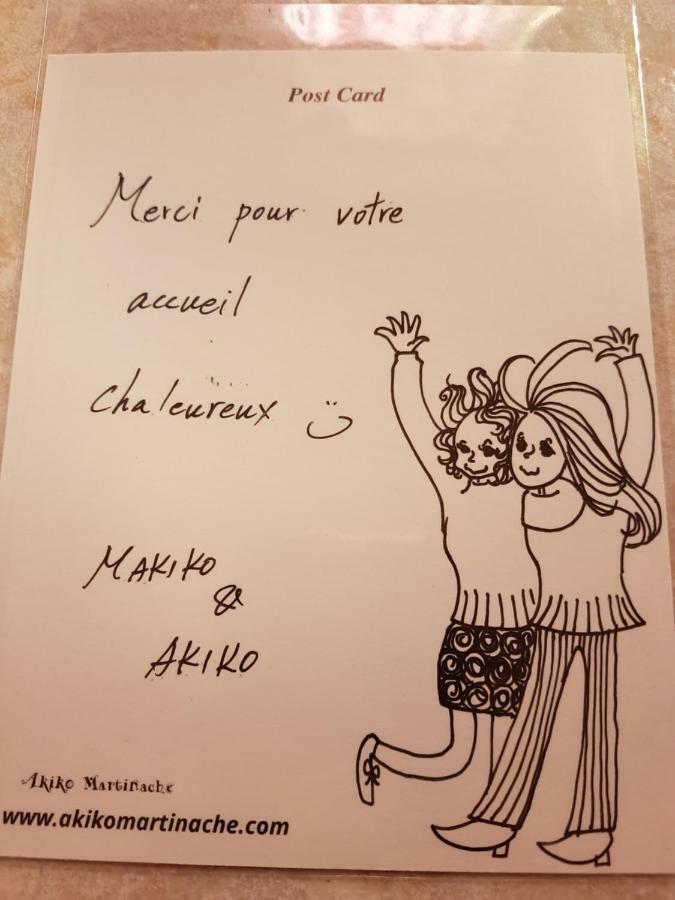 Post Card
Merci pour votre
accueil
chaleureux
MAKIKO
&
AKIKO
Akiko Martinache
www.akikomartinache.com